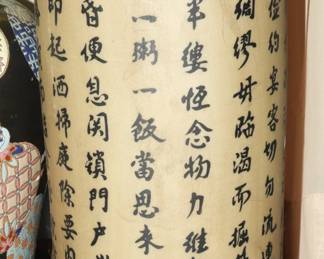 儉約宴客切勿流連
綢繆毋臨渴而掘
半縷恆念物力維
一粥一飯當思來
昏便息関鎖門戶
即起洒掃庭除要內